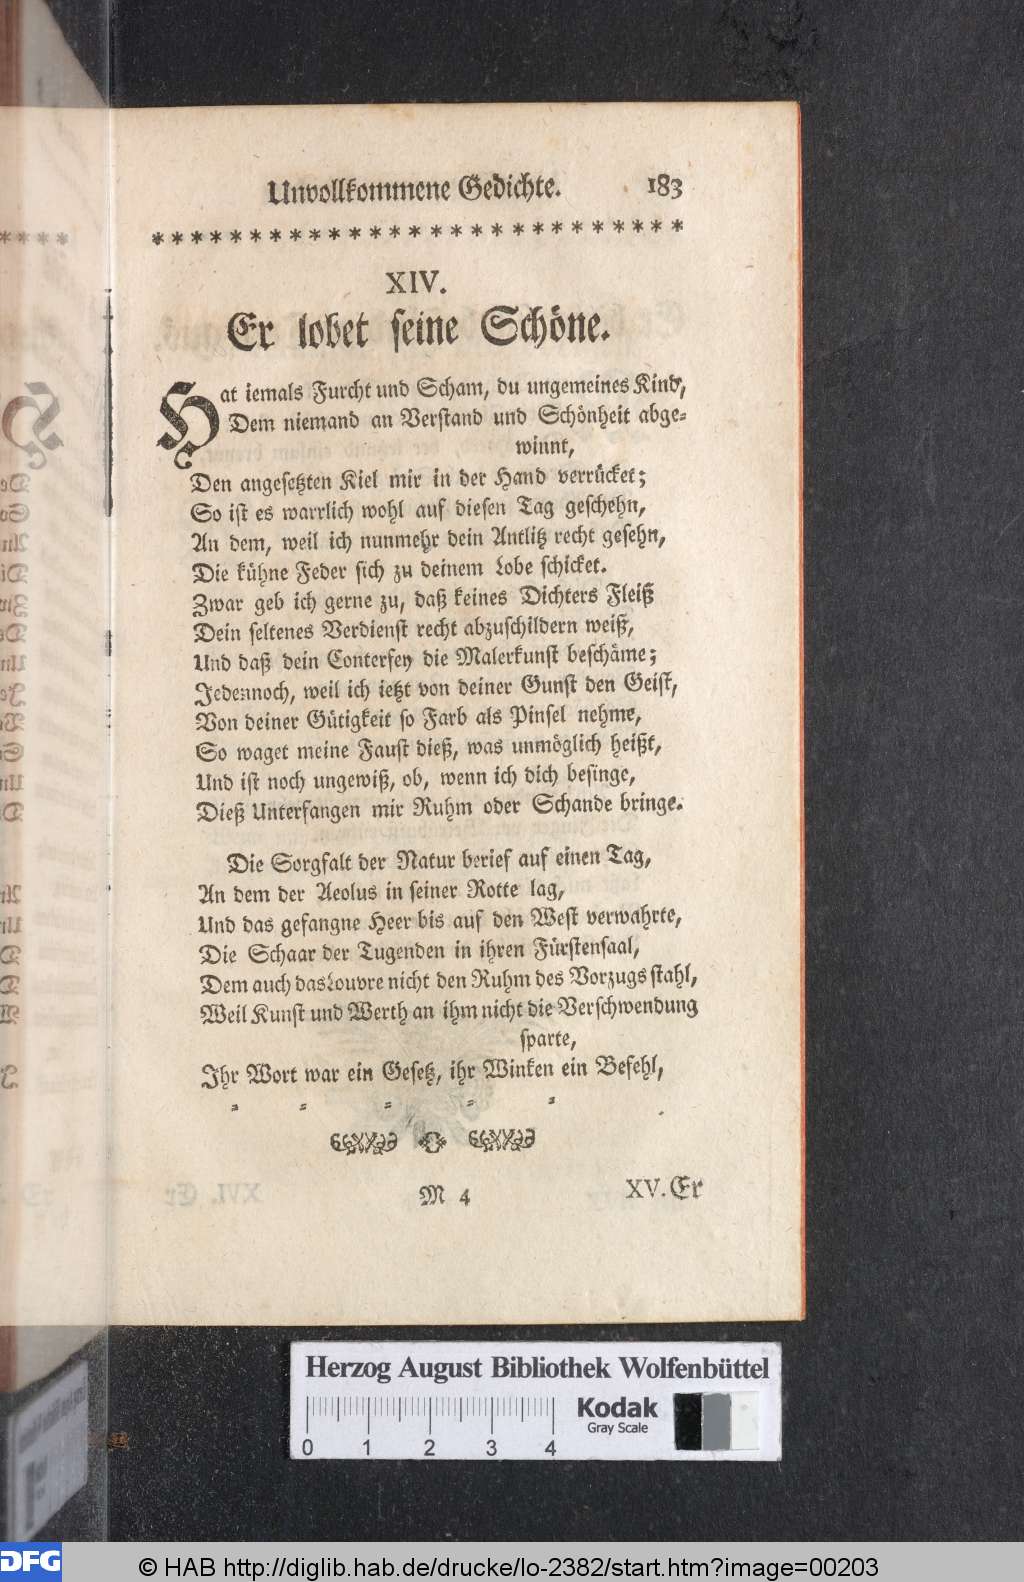 Unvollkommene Gedichte. 183
XIV.
Er lobet seine Schöne.
Hat iemals Furcht und Scham, du ungemeines Kind,
Dem niemand an Verstand und Schönheit abge-
winnt,
Den angesetzten Kiel mir in der Hand verrücket;
So ist es warrlich wohl auf diesen Tag geschehn,
An dem, weil ich nunmehr dein Antlitz recht gesehn,
Die kühne Feder sich zu deinem Lobe schicket.
Zwar geb ich gerne zu, daß keines Dichters Fleiß
Dein seltenes Verdienst recht abzuschildern weiß,
Und daß dein Conterfey die Malerkunst beschäme;
Jedennoch, weil ich ietzt von deiner Gunst den Geist,
Von deiner Gütigkeit so Farb als Pinsel nehme,
So waget meine Faust dieß, was unmöglich heißt,
Und ist noch ungewiß, ob, wenn ich dich besinge,
Dieß Unterfangen mir Ruhm oder Schande bringe.
Die Sorgfalt der Natur berief auf einen Tag,
An dem der Aeolus in seiner Rotte lag,
Und das gefangne Heer bis auf den West verwahrte,
Die Schaar der Tugenden in ihren Fürstensaal,
Dem auch das Louvre nicht den Ruhm des Vorzugs stahl,
Weil Kunst und Werth an ihm nicht die Verschwendung
sparte,
Ihr Wort war ein Gesetz, ihr Winken ein Befehl,
M 4 XV. Er
Herzog August Bibliothek Wolfenbüttel
Kodak
Gray Scale
0 1 2 3 4
DFG © HAB http://diglib.hab.de/drucke/lo-2382/start.htm?image=00203